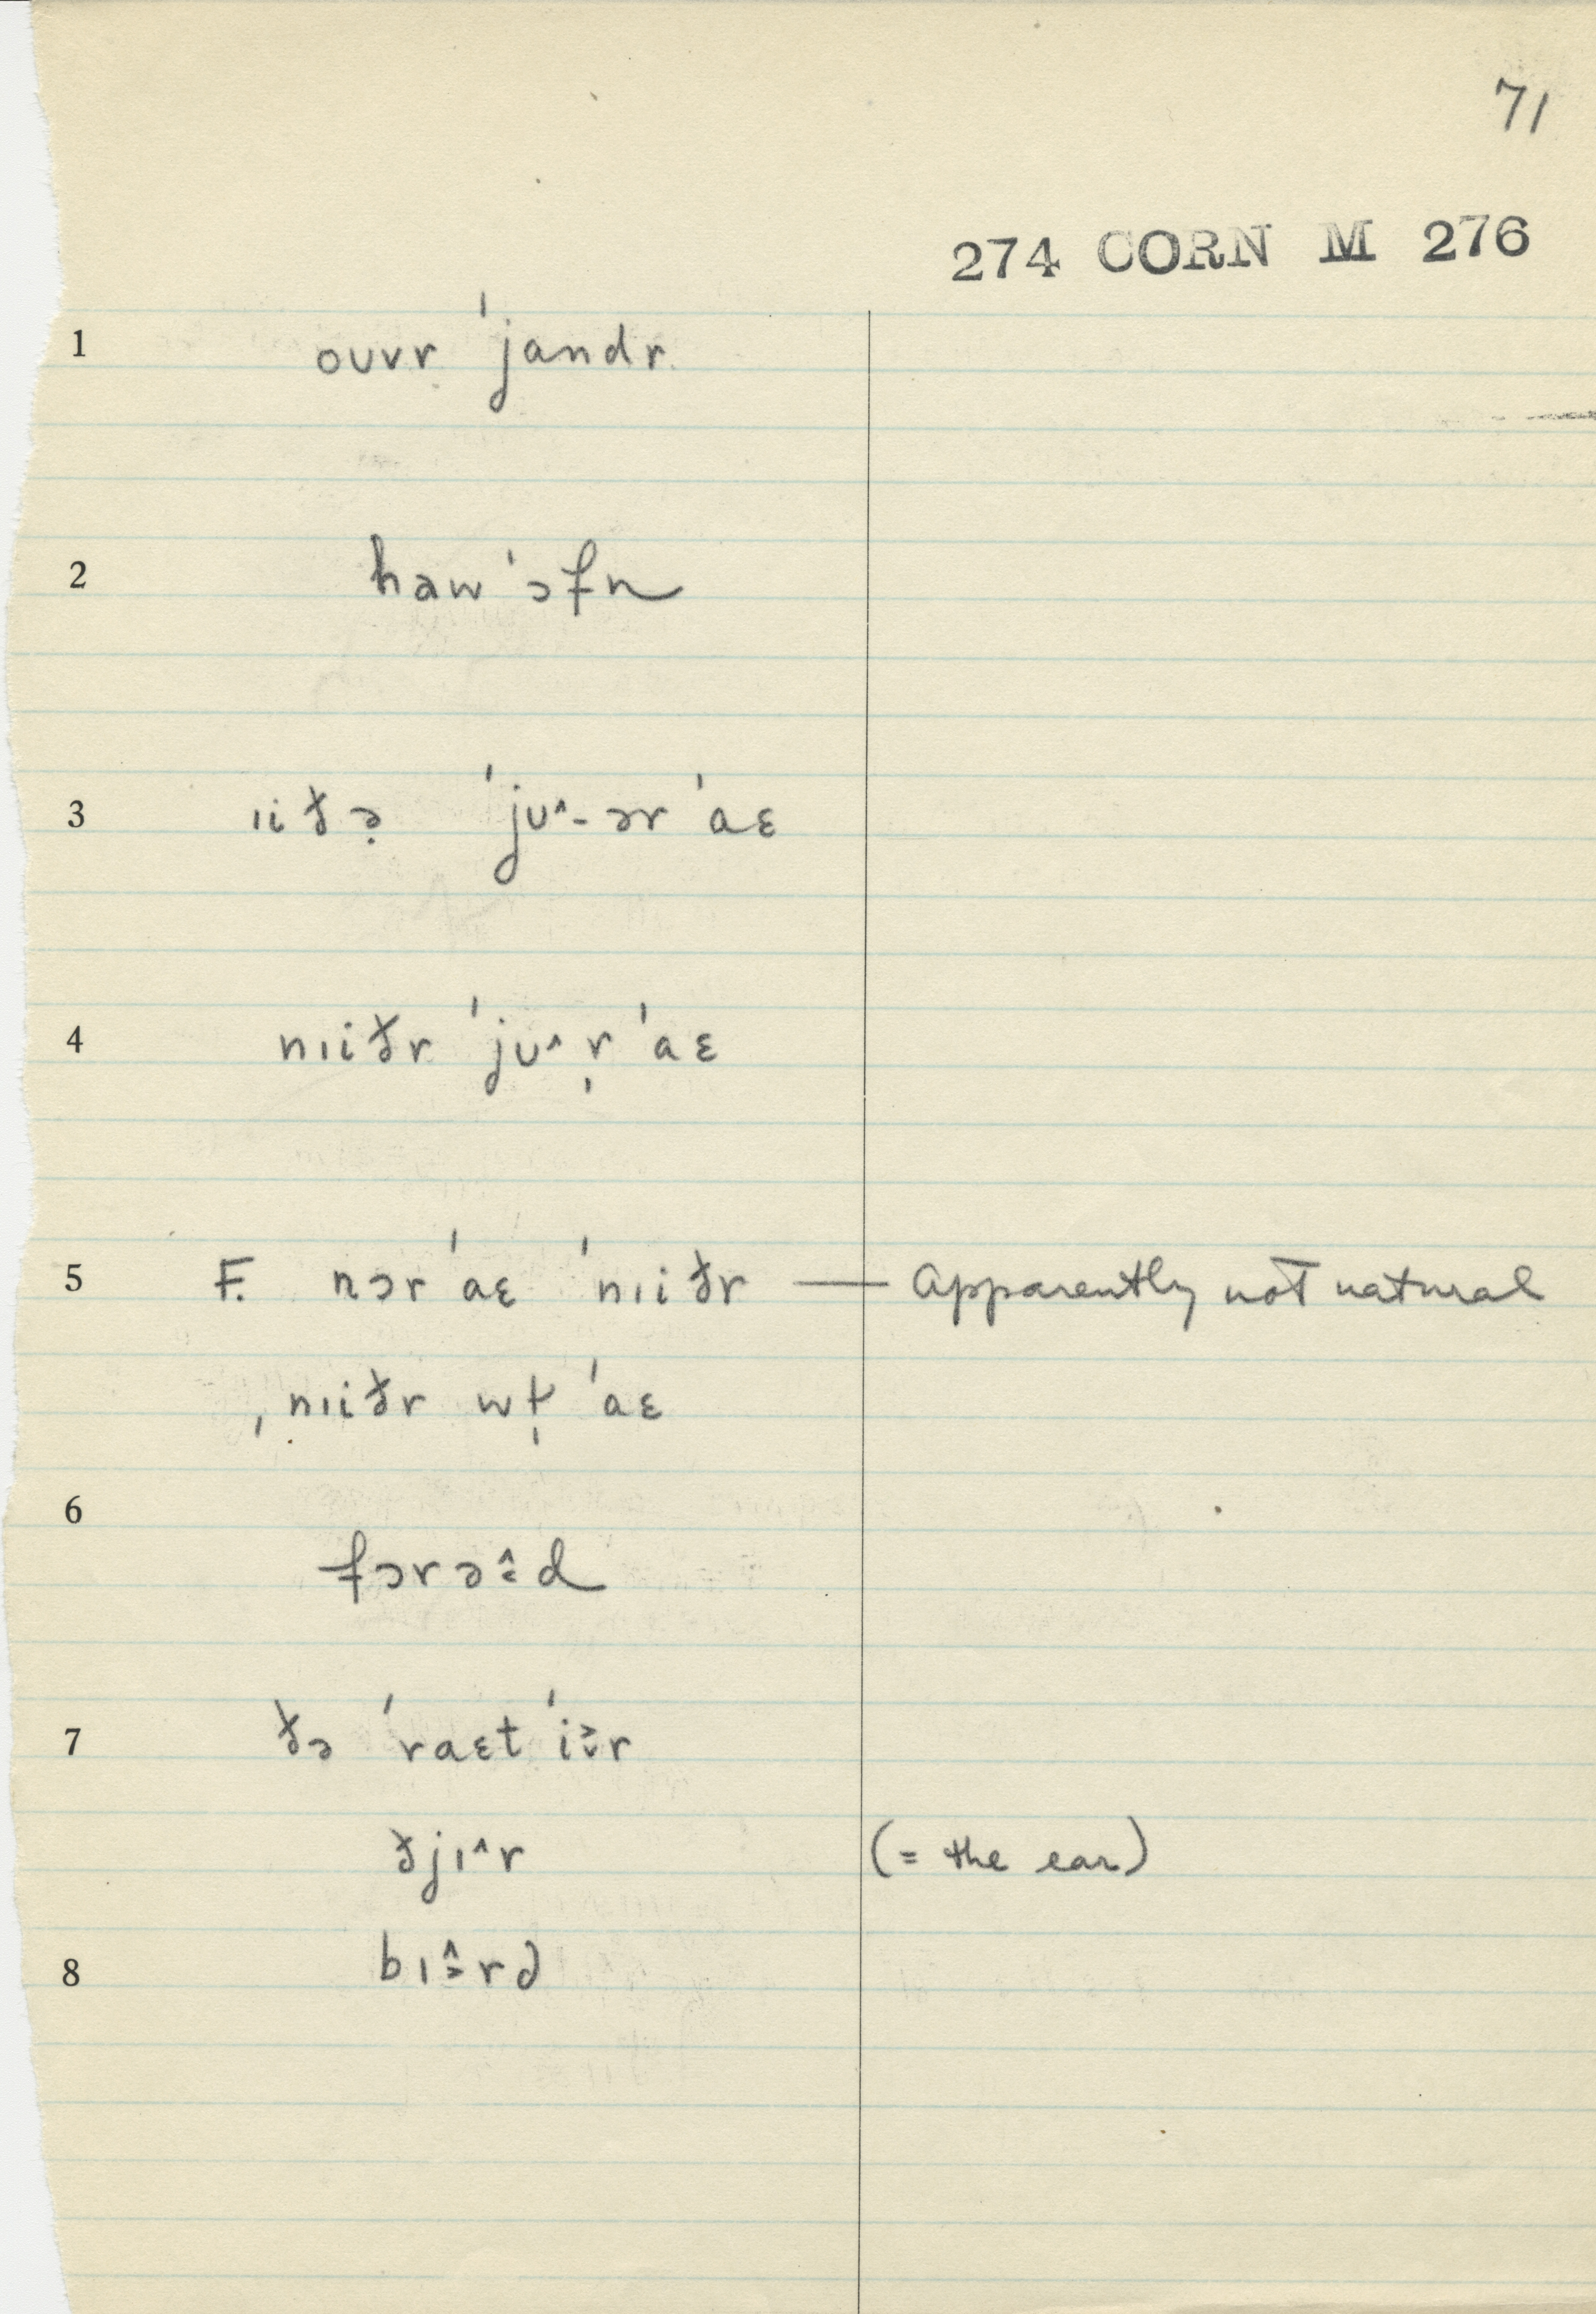 71
274 CORN M 276
1 ouvr ˈjandr
2 haw ˈɔfn
3 ɪiðə̣ ˈjʊ^-ər ˈaɛ
4 nɪiðr ˈjʊ^r̩ ˈaɛ
5 F. nɔr ˈaɛ ˈnɪiðr — Apparently not natural
ˌnɪiðr wɚ̩ ˈaɛ
6
fɔrəːd
7 ðə ˈraɛt ˈiːr
ðjɪ^r (= the ear)
8 bɪːrd